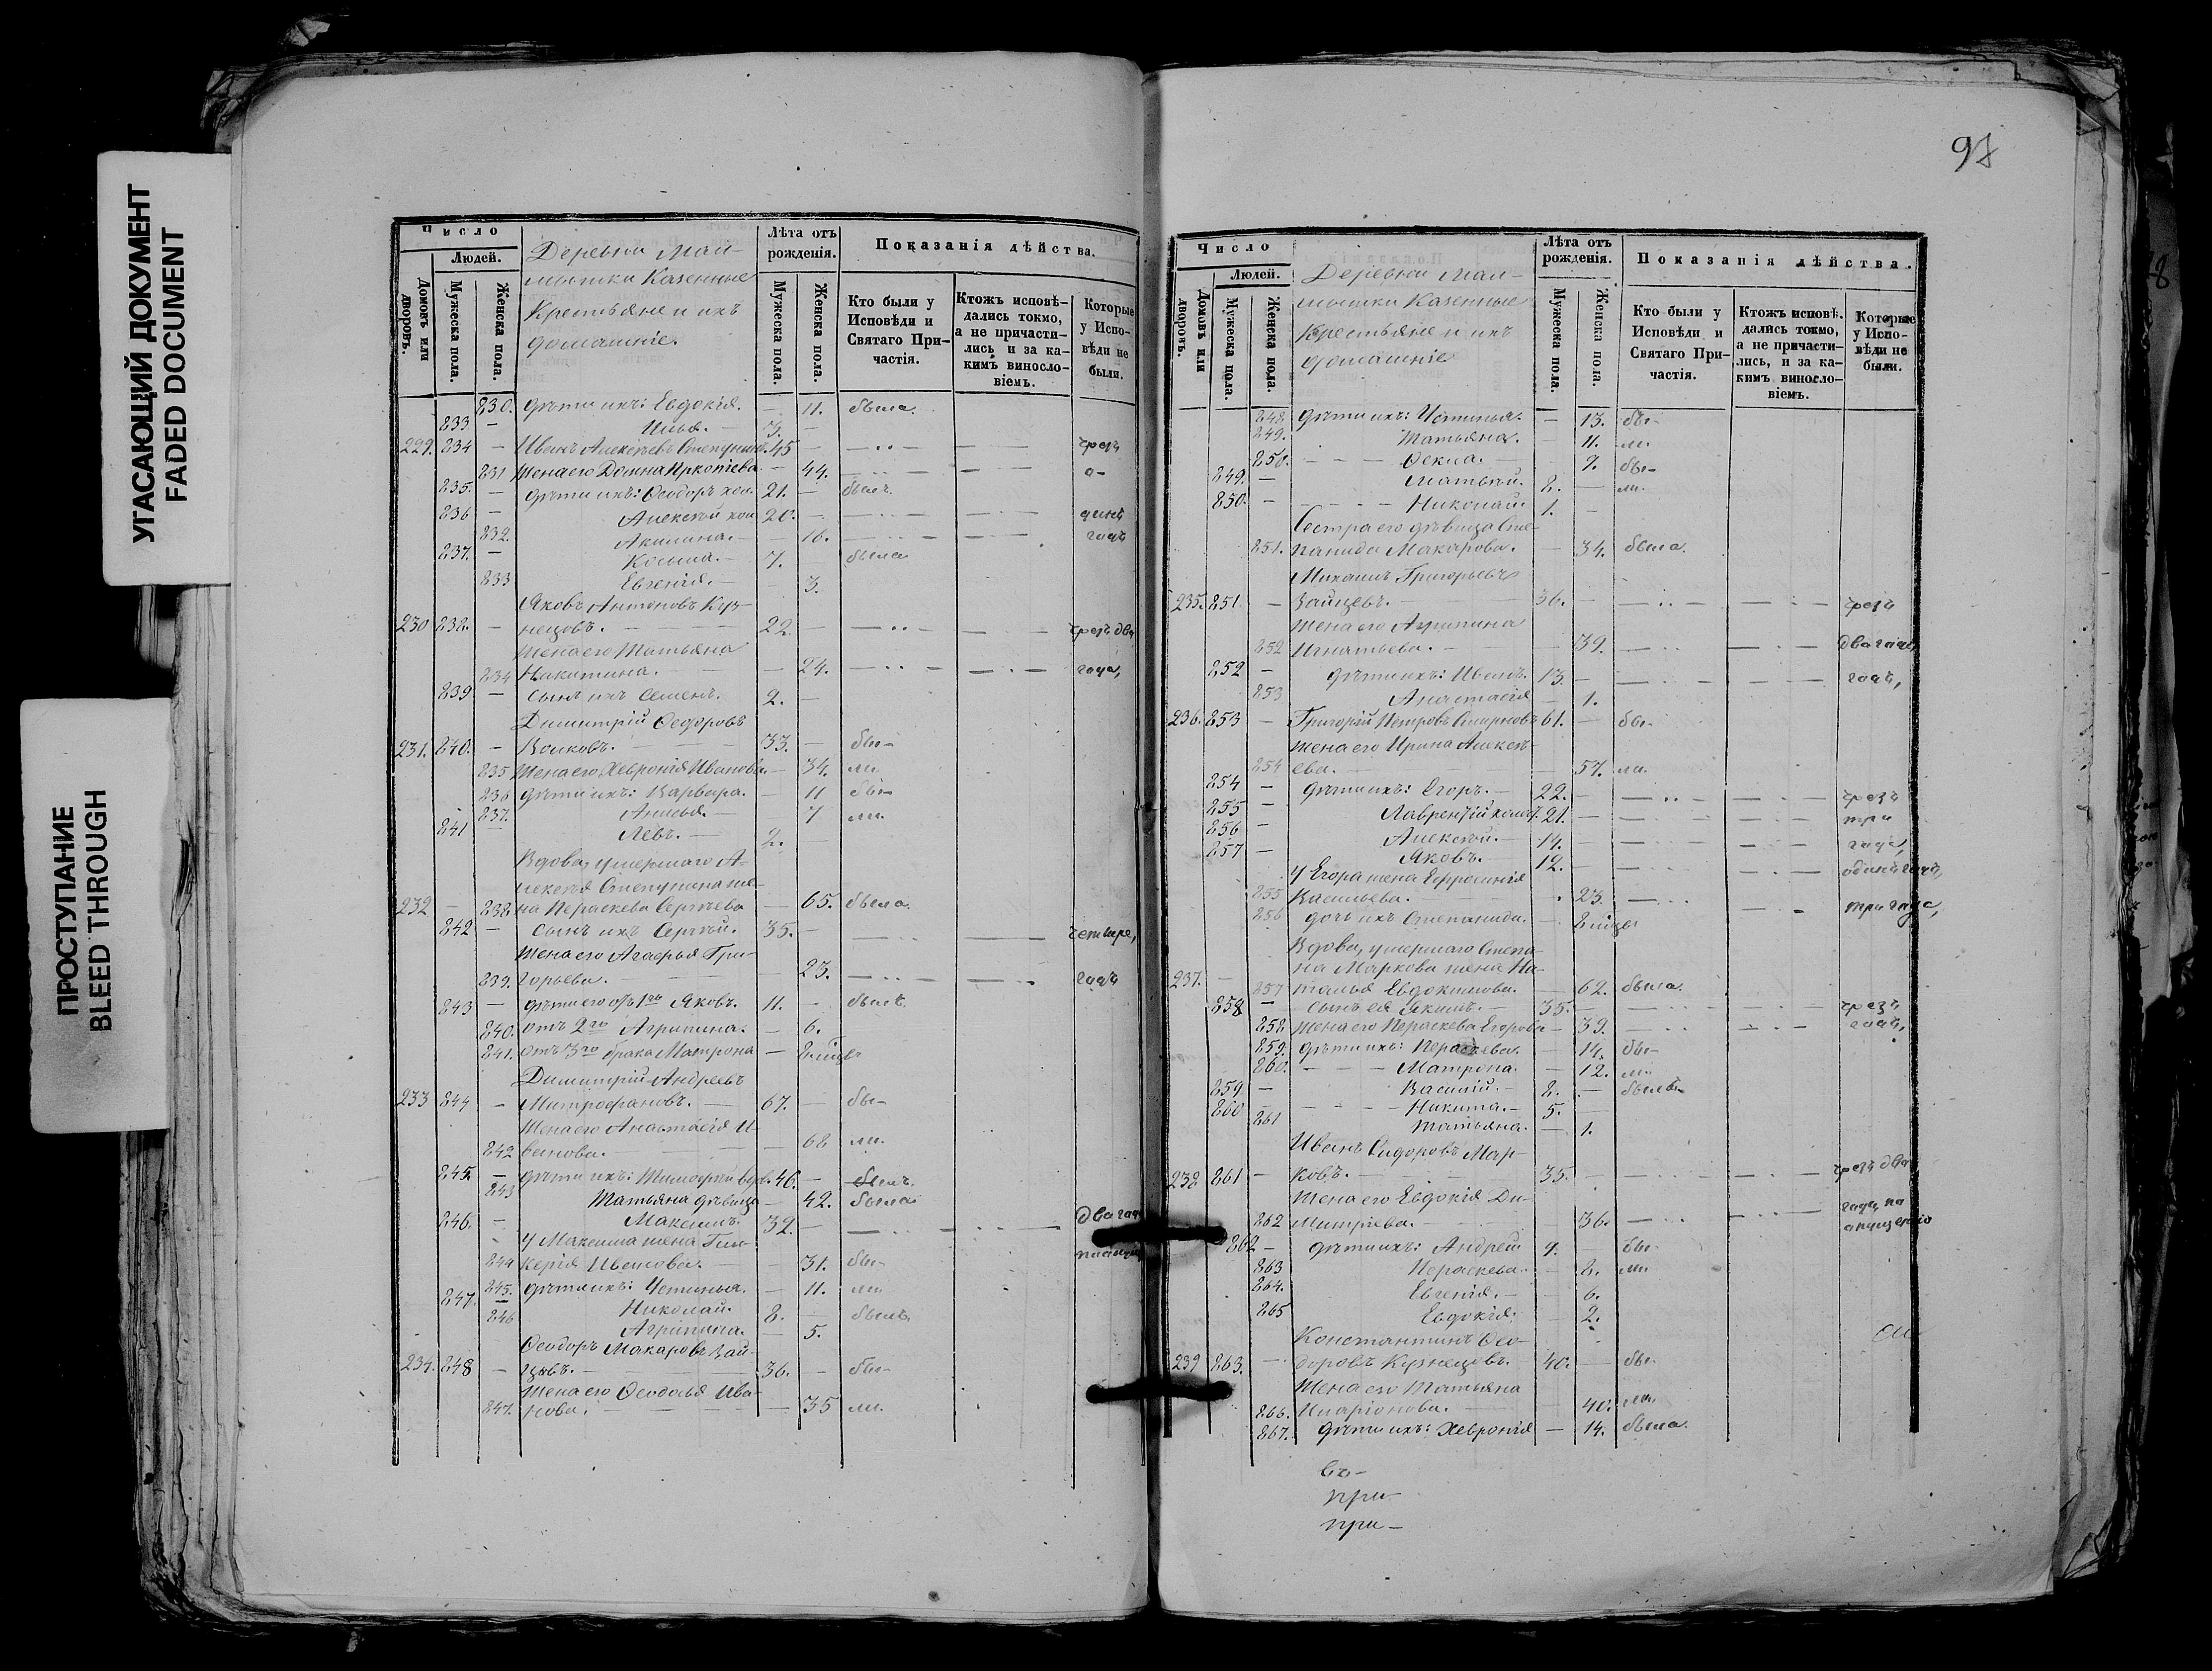 УГАСАЮЩИЙ ДОКУМЕНТ
FADED DOCUMENT
ПРОСТУПАНИЕ
BLEED THROUGH
Число
Людей.
Домовъ или дворовъ.
Мужеска пола.
Женска пола.
Деревни Май-
мышки Казенные
Крестьяне и ихъ
домашніе.
Лѣта отъ рожденія.
Мужеска пола.
Женска пола.
Показанія дѣйства.
Кто были у Исповѣди и Святаго Причастія.
Ктожъ исповѣ-
дались токмо,
а не причасти-
лись и за ка-
кимъ винослo-
віемъ.
Которые
у Испо-
вѣди не
были.
830. дѣти ихъ: Евдокія. — 11. была.
833 — Илья. — 3. —
229. 834 — Иванъ Алексѣевъ Степунинъ. 45 — чрезъ
831 Жена его Домна Прокопіева — 44. о-
835. — дѣти ихъ: Ѳеодоръ хол. 21. — былъ.
836 — Алексѣй хол 20. — динъ
832. Акилина. — 16. годъ
837. — Косьма. — 7. была
833 Евгенія. — 3.
Яковъ Антоновъ Куз-
230 838. — нецовъ. — 22. — чрезъ два
Жена его Татьяна
834 Никитина. — 24. года,
839 — сынъ ихъ Семенъ. 2. —
Димитрій Ѳеодоровъ
231. 840. — Волковъ. — 33. — бы-
835 Жена его Хевронія Иванова. — 34. ли
836 дѣти ихъ: Варвара. — 11 бы-
837. Анисья. — 7 ли.
841 — Левъ. — 2. —
Вдова, умершаго А-
лексѣя Степунина же-
232 — 838 на Параскева Сергѣева — 65. была.
842 — сынъ ихъ Сергѣй. 35. — четыре,
Жена его Агафья Гри-
839. горьева. 23. годъ
843 — дѣти его отъ 1го Яковъ. 11. — былъ
840. отъ 2го Агрипина. — 6.
841. отъ 3го брака Матрона — 8 мѣсяц.
Димитрій Андреевъ
233 844 — Митрофановъ. — 67. — бы-
Жена его Анастасія И-
842 ванова. — 68 ли.
845. — дѣти ихъ: Тимофей вдов. 46. — былъ.
843 Татьяна дѣвица — 42. была
846. — Максимъ. 39. — два года
У Максима жена Гли-
844 керія Иванова. — 31. бы-
845. дѣти ихъ: Устинья. — 11. ли
847. — Николай. 8. — былъ.
846 Агрипина. — 5.
Ѳеодоръ Макаровъ Зай-
234. 848 — цовъ. — 36. — бы-
Жена его Ѳеодосья Ива-
847. нова. — 35 ли.
97
Число
Людей.
Домовъ или дворовъ.
Мужеска пола.
Женска пола.
Деревни Май-
мышки Казенные
Крестьяне и ихъ
домашніе
Лѣта отъ рожденія.
Мужеска пола.
Женска пола.
Показанія дѣйства.
Кто были у Исповѣди и Святаго Причастія.
Ктожъ исповѣ-
дались токмо,
а не причасти-
лись, и за ка-
кимъ винослo-
віемъ.
Которые
у Испо-
вѣди не
были.
848 дѣти ихъ: Устинья. — 13. бы-
849. Татьяна. — 11. ли.
850. Ѳекла. — 9. бы-
849. — Матвѣй. 8. — ли.
850. — Николай. 1. —
Сестра его дѣвица Сте-
851. панида Макарова. — 34. была.
Михаилъ Григорьевъ
235. 851 — Зайцевъ. 36. — чрезъ
Жена его Агрипина
852 Игнатьева. — 39. два года
852 — дѣти ихъ: Иванъ. 13. — годъ,
853 Анастасія — 1.
236. 853 — Григорій Петровъ Смирновъ 61. — бы-
Жена его Ирина Алексѣ-
854 ева. — 57. ли.
854 — дѣти ихъ: Егоръ. — 22. — чрезъ
855 — Лаврентій холост. 21. — три
856 — Алексѣй. — 14. — года,
857 — Яковъ. — 12. — одинъ годъ,
У Егора жена Ефросинія
855 Васильева. 23. три года,
856 дочь ихъ Степанида. — 8 мѣсяц
Вдова, умершаго Степа-
на Маркова жена На-
237. — 857 талья Евдокимова. — 62. была.
858 — сынъ ея Якимъ. — 35. — чрезъ
858 Жена его Параскева Егорова — 39. годъ,
859. дѣти ихъ: Параскева. — 14. бы-
860. Матрона. — 12. ли.
859 — Василій. — 8. — былъ
860 — Никита. — 5. —
861 Татьяна. — 1.
Иванъ Сидоровъ Мар-
238 861 — ковъ. — 35. — чрезъ два
Жена его Евдокія Ди-
862 митріева. 36. года, по
опущенію
862 — дѣти ихъ: Андрей 9. — бы-
863 Параскева. — 8. ли.
864. Евгенія. — 6.
865 Евдокія. — 2.
Константинъ Ѳео-
239 863. — доровъ Кузнецовъ. 40. — бы-
Жена его Татьяна
866. Иларіонова. — 40. ли.
867. дѣти ихъ: Хевронія — 14. была.
при-
при-